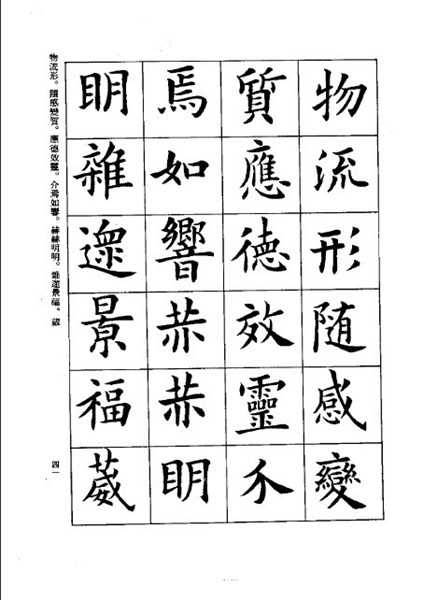 物流形随感變
質應德效靈介
焉如響赫赫眀
眀雜遝景福葳
物流形。隨感變質。應德效靈。介焉如響。赫赫明明。雜遝景福。葳
四一